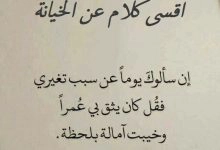 اقسى كلام عن الخيانة
إن سألوكَ يوماً عن سبب تغيري
فقُل كان يثق بي عُمراً
وخيبت آمالة بلحظة.